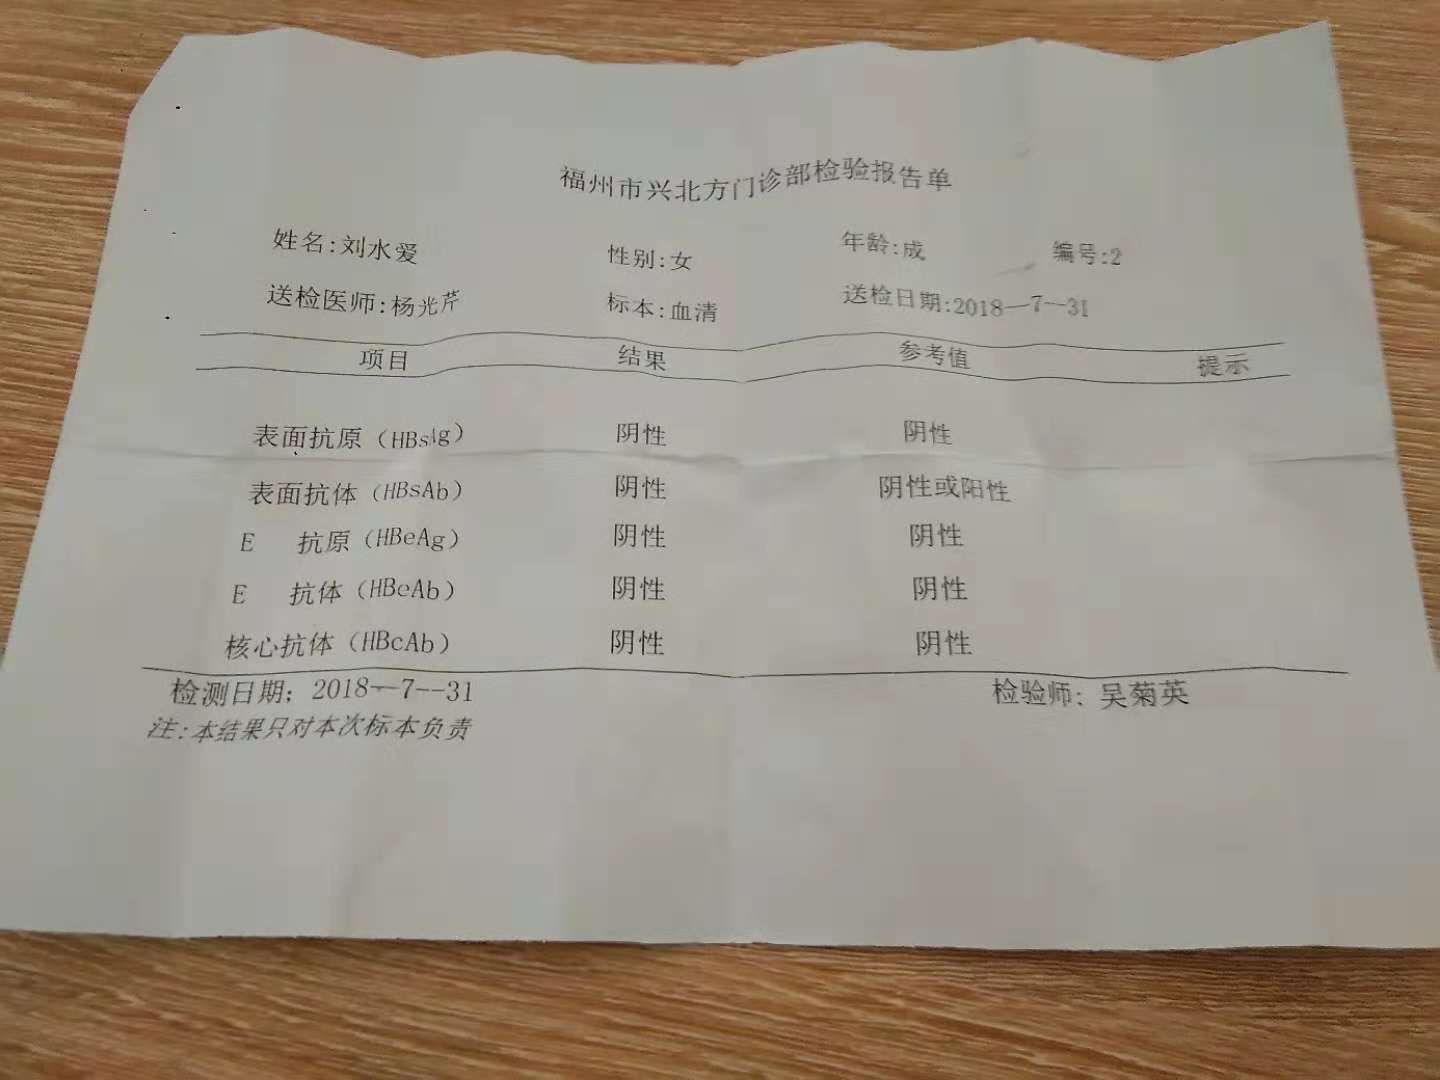 福州市兴北方门诊部检验报告单
姓名:刘水爱 性别:女 年龄:成 编号:2
送检医师:杨光芹 标本:血清 送检日期:2018-7--31
项目 结果 参考值 提示
表面抗原(HBsAg) 阴性 阴性
表面抗体(HBsAb) 阴性 阴性或阳性
E 抗原(HBeAg) 阴性 阴性
E 抗体(HBeAb) 阴性 阴性
核心抗体(HBcAb) 阴性 阴性
检测日期: 2018-7--31 检验师: 吴菊英
注:本结果只对本次标本负责